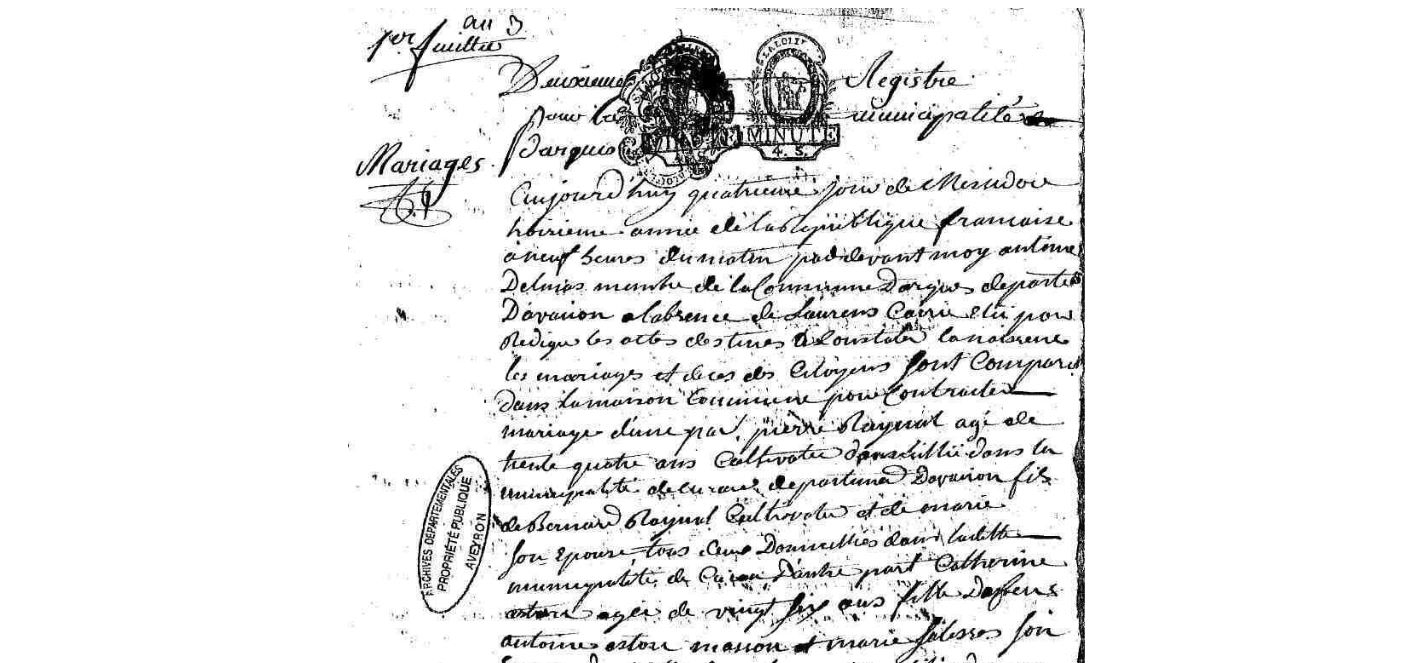 an 3
1er feuillet
Deuxieme Registre
pour la municipalité
Darques
Mariages
LA LOI
MINUTE MINUTE
4. S.
aujourd'huy quatrieme jour de Messidor
troisieme année de la Republique francaise
a neuf heures du matin par devant moy antoine
Delmas membre de la Commune Darques departe
Daveiron a labsence de Laurens Carrie Elu pour
Rediger les actes destines a Constater la naissence
les mariages et deces des Citoyens sont Comparu
dans la maison Commune pour Contracter
mariage dune par pierre Raynal agé de
trente quatre ans Cultivateur domicillié dans la
municipalité de departement Daveiron fils
de Bernard Raynal Cultivateur et de marie
son Epouse tous deux Domicillies dans ladite
municipalité de D'autre part Catherine
aston agée de vingt six ans fille
antoine aston masson et marie son
ARCHIVES DEPARTEMENTALES
PROPRIÉTÉ PUBLIQUE
AVEYRON